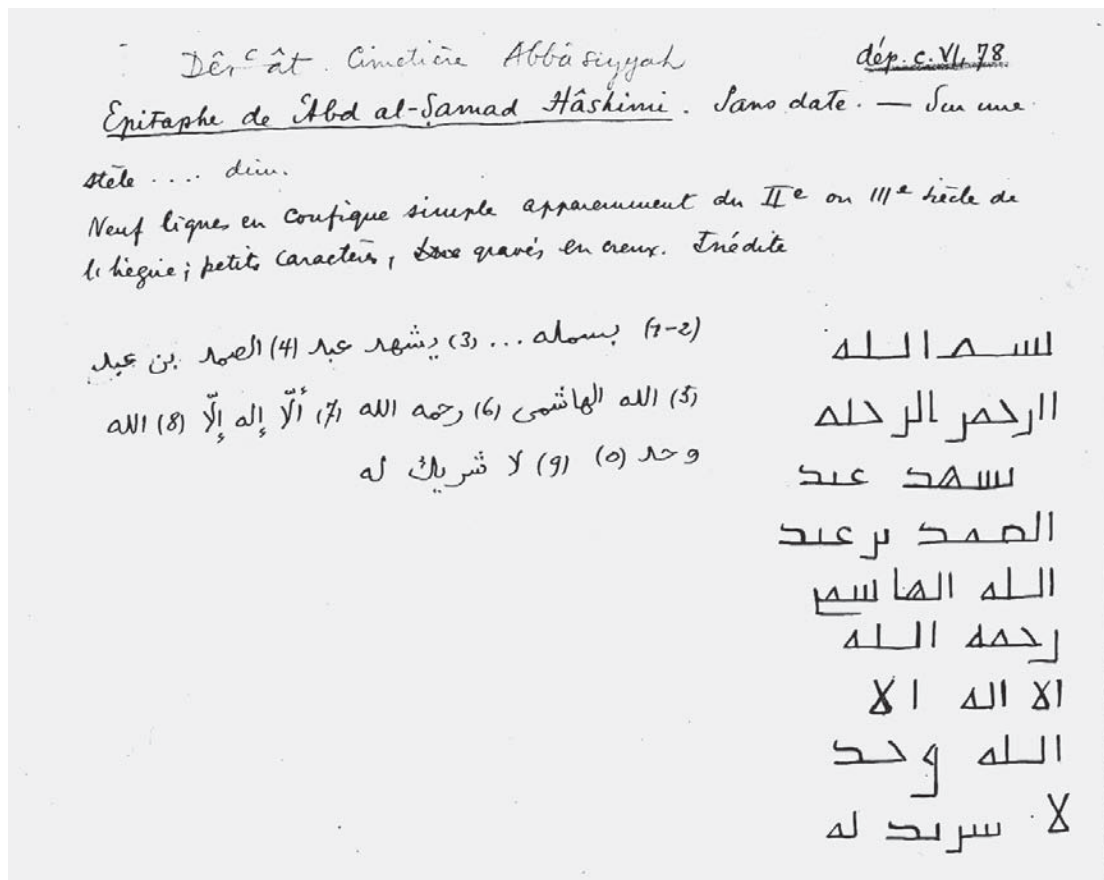 Dêrʿât. Cimetière Abbâsiyyah
dép. c. VI, 78
Épitaphe de ʿAbd al-Ṣamad Hâshimi. Sans date. — Sur une
stèle .... dim.
Neuf lignes en coufique simple apparemment du IIe ou IIIe siècle de
l'hégire; petits caractères, gravés en creux. Inédite
(1-2) بسمله ... (3) يشهد عبد (4) الصمد بن عبد
(5) الله الهاشمى (6) رحمه الله (7) ألّا إله إلّا (8) الله
وحد (ه) (9) لا شريك له
بسم الله
الرحمن الرحيم
يشهد عبد
الصمد بن عبد
الله الهاشمى
رحمه الله
الا اله الا
الله وحد
لا شريك له